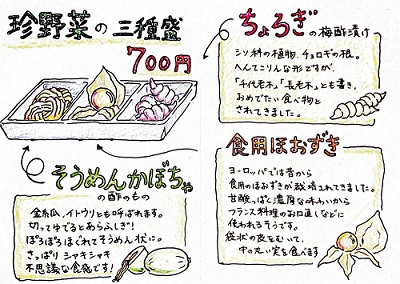 珍野菜の三種盛
700円
そうめんかぼちゃ
の酢のもの
金糸瓜、イトウリとも呼ばれます。
切ってゆでるとあらふしぎ!
ぽろぽろほぐれてそうめん状に。
さっぱりシャキシャキ
不思議な食感です!
ちょろぎの梅酢漬け
シソ科の植物、チョロギの根。
へんてこりんな形ですが、
「千代老木」「長老木」とも書き、
おめでたい食べ物と
されてきました。
食用ほおずき
ヨーロッパでは昔から
食用のほおずきが栽培されてきました。
甘酸っぱく濃厚な味わいから
フランス料理のお口直しなどに
使われるそうです。
袋状の皮をむいて、
中の丸い実を食べます